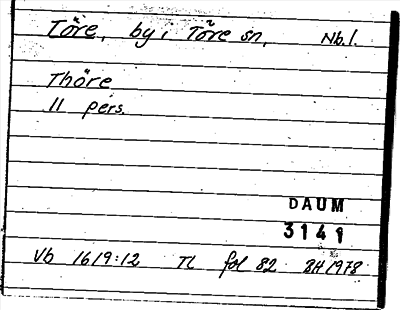 Töre, by i Töre sn, Nb.l.
Thöre
11 pers.
DAUM
3141
Vb 1619:12 TL fol 82 BH 1978